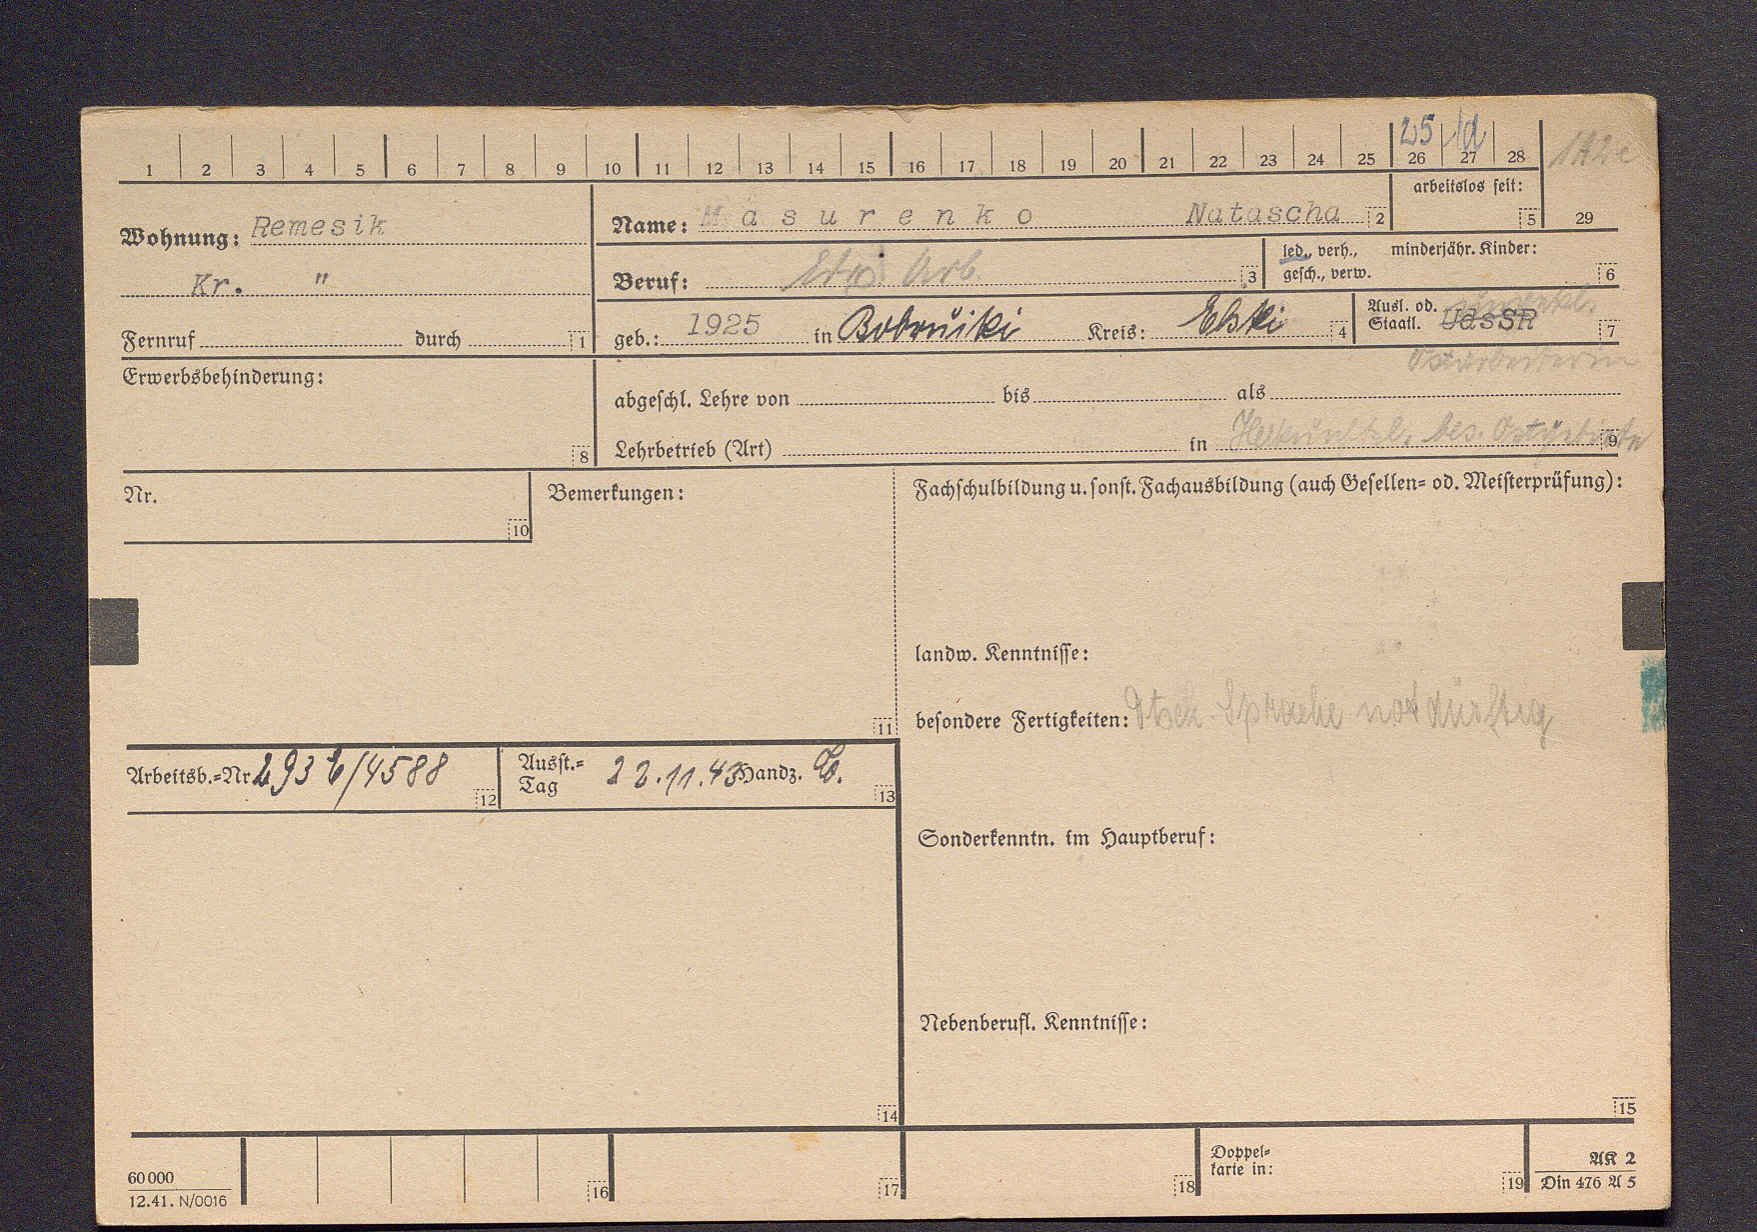 25
1 2 3 4 5 6 7 8 9 10 11 12 13 14 15 16 17 18 19 20 21 22 23 24 25 26 27 28
arbeitslos seit:
5 29
Wohnung: Remesik
Kr. "
Fernruf durch 1
Name: Masurenko Natascha 2
Beruf: Arb. 3
led., verh., minderjähr. Kinder:
gesch., verw. 6
geb.: 1925 in Bobruiki Kreis: 4
Ausl. od.
Staatl. UdsSR 7
Ostarbeiterin
Erwerbsbehinderung:
8
abgeschl. Lehre von bis als
Lehrbetrieb (Art) in 9
Nr.
10
Bemerkungen:
11
Fachschulbildung u. sonst. Fachausbildung (auch Gesellen- od. Meisterprüfung):
landw. Kenntnisse:
besondere Fertigkeiten: Dtsch. Sprache notdürftig
Arbeitsb.-Nr. 293 /4588 12
Ausst.-
Tag 22.11.43 Handz. 13
Sonderkenntn. im Hauptberuf:
Nebenberufl. Kenntnisse:
14
15
60 000
12.41. N/0016
16
17
18
Doppel-
karte in:
19
AK 2
Din 476 A 5